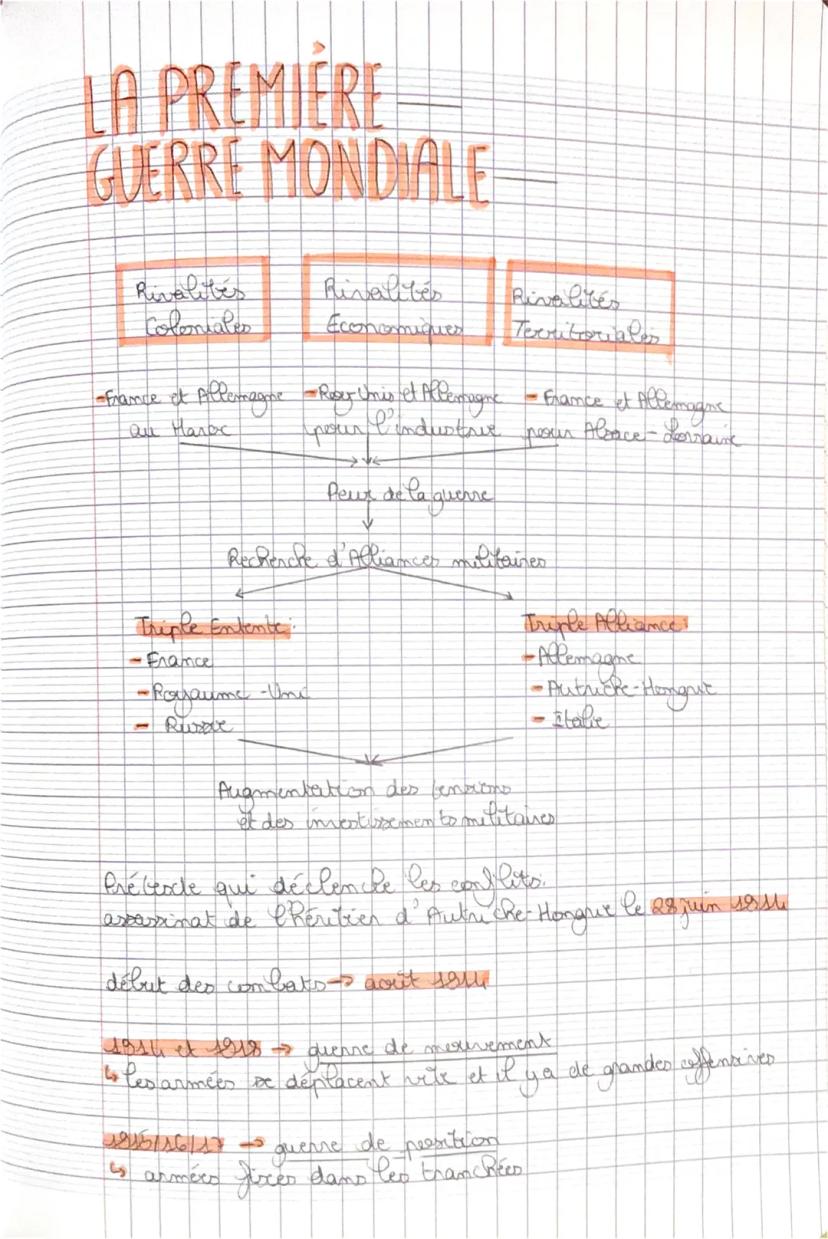 LA PREMIÈRE
GUERRE MONDIALE
Rivalités
Coloniales
Rivalités
Economiques
Rivalités
Territoriales
-France et Allemagne
au Maroc
-Roy Unis et Allemagne
pour l'industrie
- France et Allemagne
pour Alsace-Lorraine
Peur de la guerre
Recherche d'Alliances militaires
Triple Entente:
- France
- Royaume-Uni
- Russie
Triple Alliance:
- Allemagne
- Autriche-Hongrie
- Italie
Augmentation des tensions
et des investissements militaires
qui déclenche les conflits:
assassinat de l'héritier d'Autriche-Hongrie le 28 juin 1914
début des combats → août 1914
1914 et 1918 → guerre de mouvement
↳ les armées se déplacent vite et il y a de grandes offensives
1915/16/17 → guerre de position
↳ armées fixes dans les tranchées